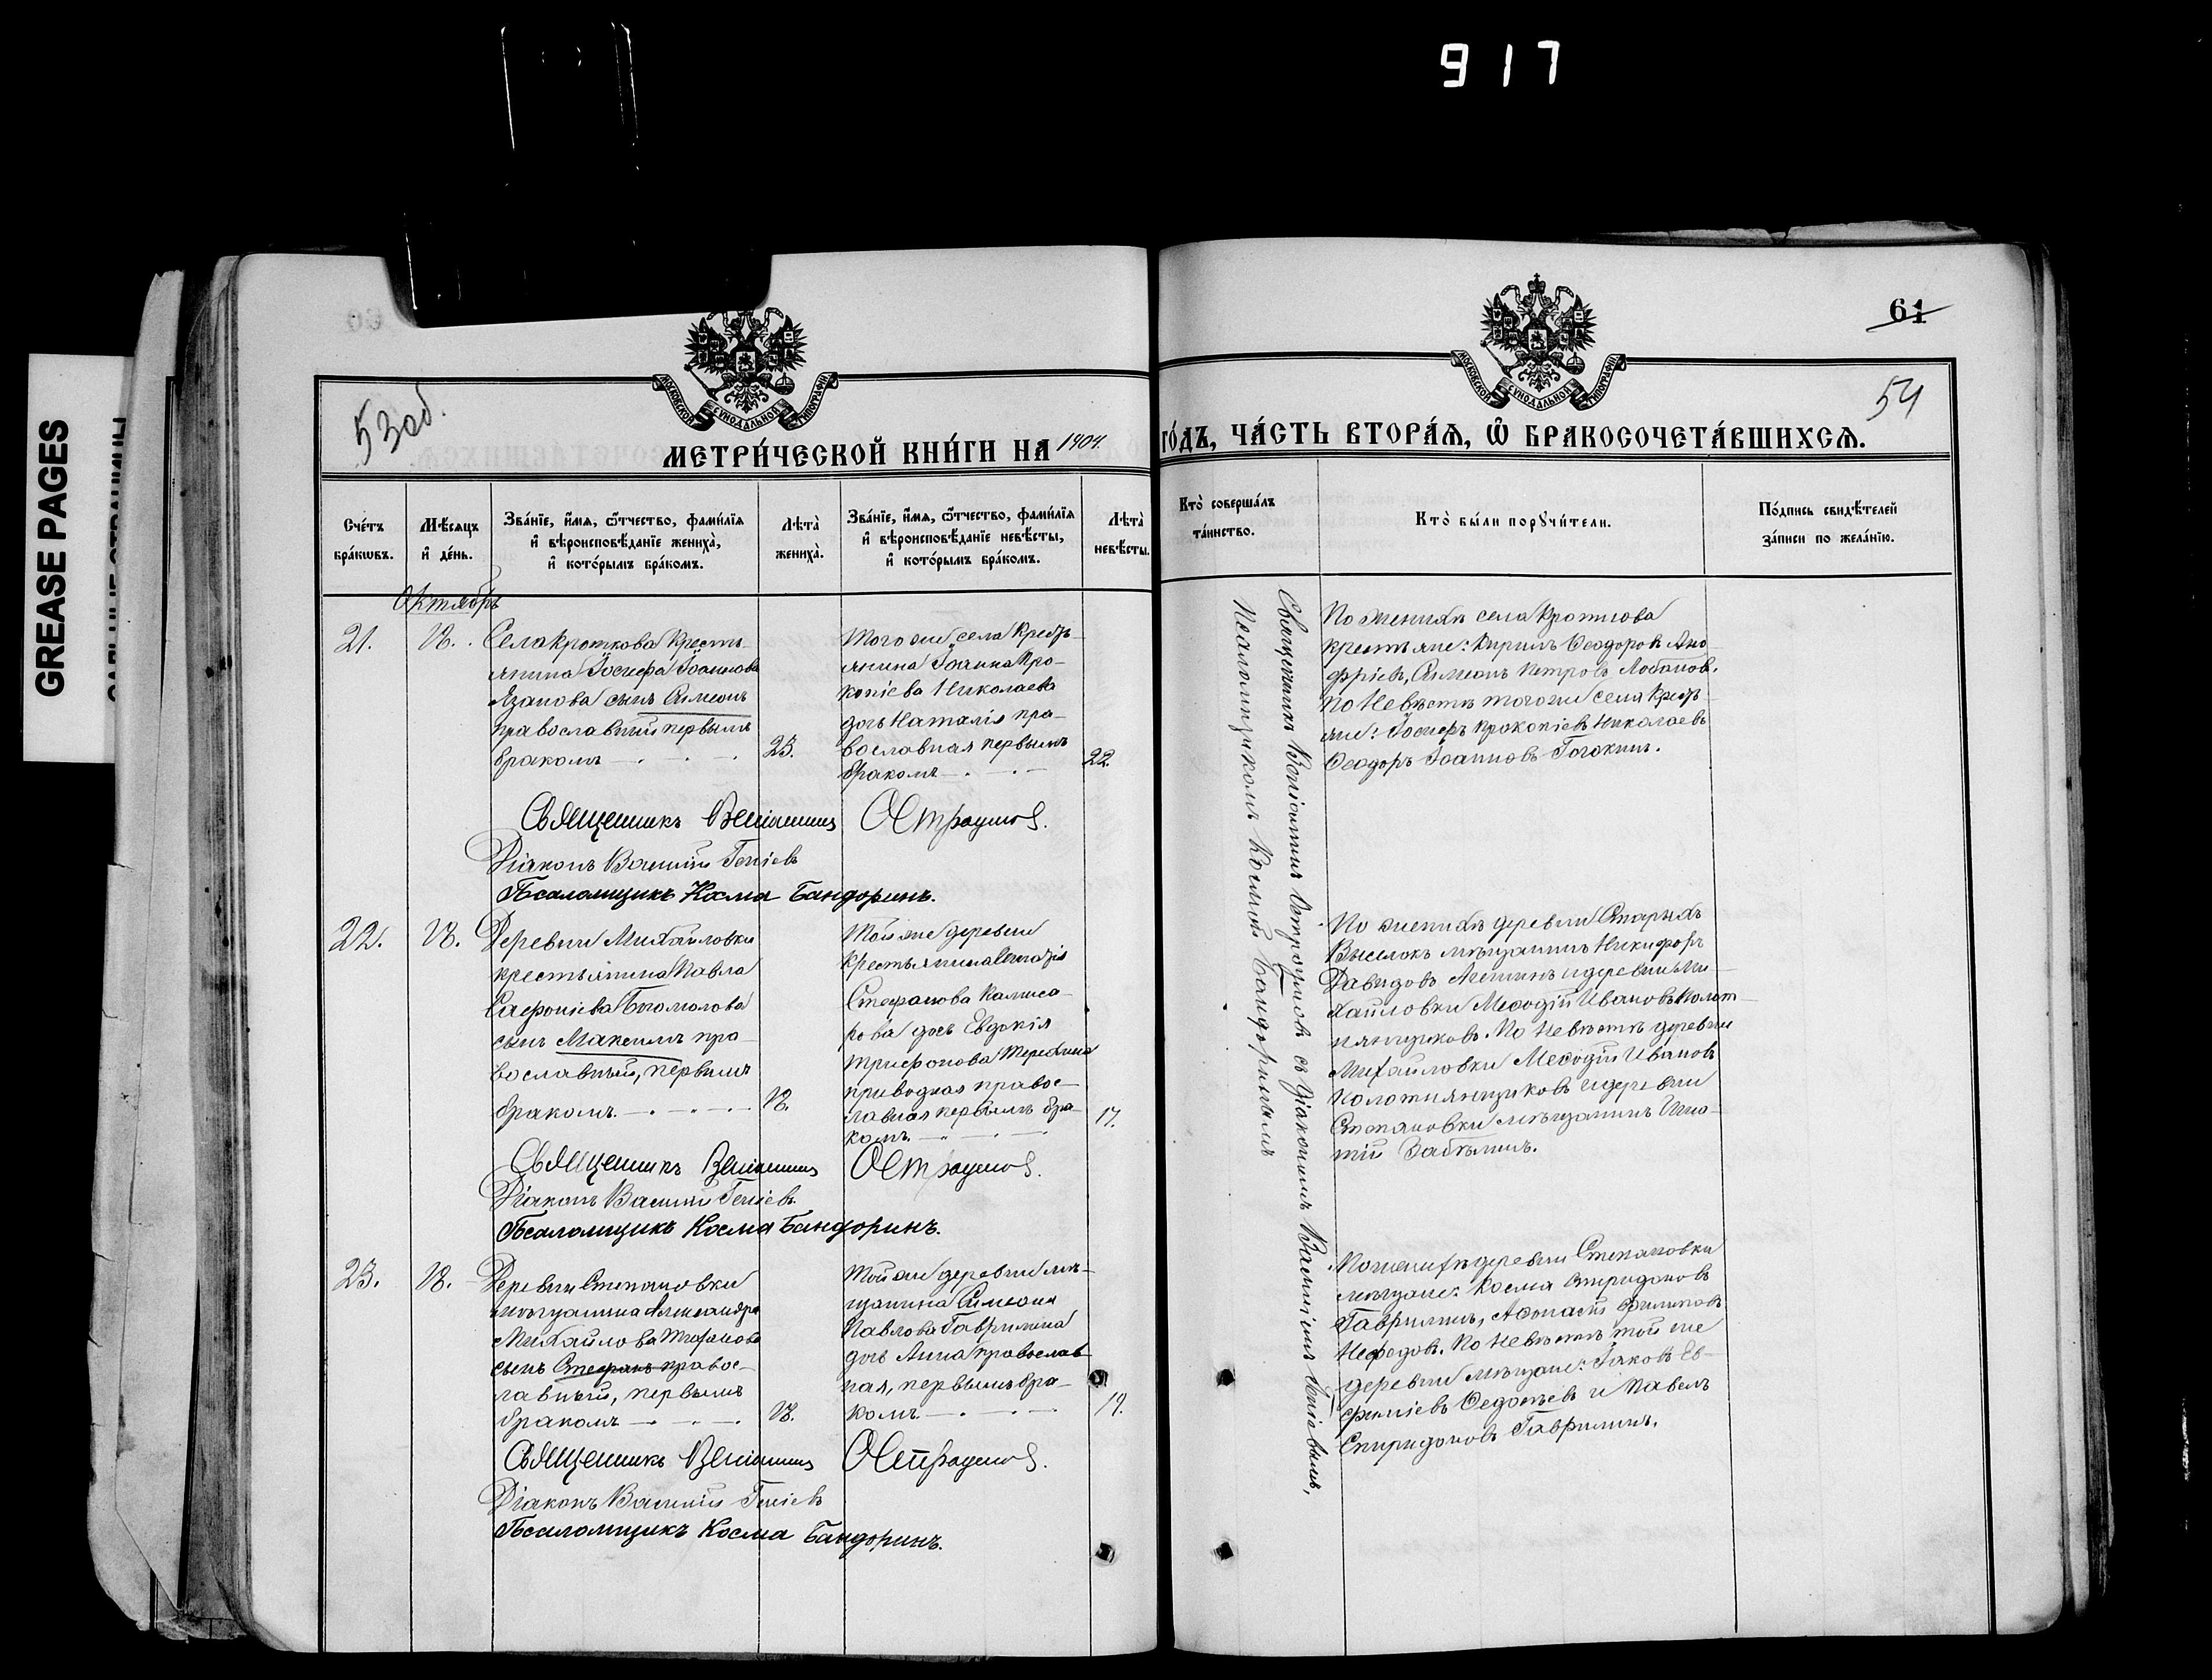 917
GREASE PAGES
61
53 об.
54
МОСКОВСКОЙ СѴНОДАЛЬНОЙ ТИПОГРАФІИ
МОСКОВСКОЙ СѴНОДАЛЬНОЙ ТИПОГРАФІИ
МЕТРИ́ЧЕСКОЙ КНИ́ГИ НА 1904
ГО́ДЪ, ЧА́СТЬ ВТОРА́Я, Ѡ БРАКОСОЧЕТА́ВШИХСЯ.
Сче́тъ
бра́кωвъ.
Мѣ́сяцъ
и де́нь.
Зва́нїе, и́мя, ѻ҆́тчество, фами́лїя
и вѣроисповѣ́данїе жениха̀,
и кото́рымъ бра́комъ.
Лѣта̀
жениха̀.
Зва́нїе, и́мя, ѻ҆́тчество, фами́лїя
и вѣроисповѣ́данїе невѣ́сты,
и кото́рымъ бра́комъ.
Лѣта̀
невѣ́сты.
Кто̀ соверша́лъ
та́инство.
Кто̀ бы́ли порꙋчи́тели.
По́дпись свидѣ́телей
за́писи по жела́нїю.
Октябрь
21.
18.
Села Кроткова Кресть-
янина Іосифа Іоаннова
Язанова сынъ Симеонъ
православный первымъ
бракомъ
23.
Того же села Кресть-
янина Іоанна Про-
копіева Николаева
дочь Наталія пра-
вославная первымъ
бракомъ
22.
По женихѣ села Кроткова
крестьяне: Кирилъ Ѳеодоровъ Ано-
фріевъ, Симеонъ Петровъ Лобановъ.
По Невѣстѣ того же села Кресть-
яне: Іосифъ Прокопіевъ Николаевъ
Ѳеодоръ Іоанновъ Гогокинъ.
Священникъ Веніаминъ Остроумовъ.
Діаконъ Василій Геніевъ
Псаломщикъ Косма Бандоринъ.
22.
18.
Деревни Михайловки
крестьянина Павла
Сафоніева Богомолова
сынъ Максимъ пра-
вославный, первымъ
бракомъ.
18.
Той же деревни
крестьянина
Стефанова Комиса-
рова дочь Евдокія
Трифонова Терехина
приводная правос-
лавная первымъ бра-
комъ
17.
По женихѣ деревни Старыхъ
Выселокъ мѣщанинъ Никифоръ
Давидовъ и деревни Ми-
хайловки Меѳодій Ивановъ Полот-
нянщиковъ. По Невѣстѣ деревни
Михайловки Меѳодій Ивановъ
Полотнянщиковъ и деревни
Степановки мѣщанинъ Игна-
тій Забѣлинъ.
Священникъ Веніаминъ Остроумовъ.
Діаконъ Василій Геніевъ.
Псаломщикъ Косма Бандоринъ.
23.
18.
Деревни Степановки
мѣщанина Александра
Михайлова
сынъ Стефанъ правос-
лавный, первымъ
бракомъ
18.
Той же деревни мѣ-
щанина Симеона
Павлова Гаврилина
дочь Анна православ-
ная, первымъ бра-
комъ
19.
По женихѣ деревни Степановки
мѣщане: Косма Спиридоновъ
Гаврилинъ, Аѳанасій Филиповъ
Нефедовъ. По Невѣстѣ той же
деревни мѣщане: Іаковъ Ев-
фиміевъ Ѳедотьевъ и Павелъ
Спиридоновъ Гаврилинъ.
Священникъ Веніаминъ Остроумовъ.
Діаконъ Василій Геніевъ
Псаломщикъ Косма Бандоринъ.
Священникъ Веніаминъ Остроумовъ съ діакономъ Василіемъ Геніевымъ,
Псаломщикомъ Космой Бандоринымъ